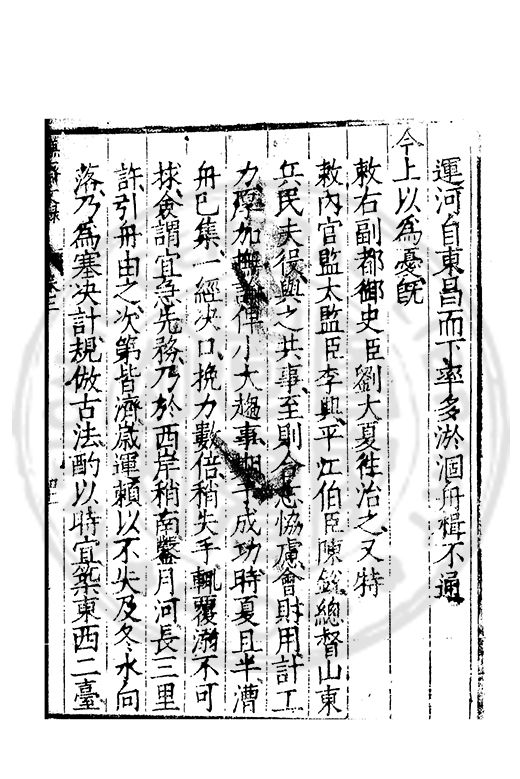 運河自東昌而下率多淤涸舟楫不通
今上以為憂旣
敕右副都御史臣劉大夏往治之又特
敕內官監太監臣李興平江伯臣陳銳總督山東
兵民夫役與之共事至則合志協慮會財用計工
力加撫諭俾小大趨事期于成功時夏且半漕
舟已集一經決口挽力數倍稍失手輒覆溺不可
捄僉謂宜急先務乃於西岸稍南鑿月河長三里
許引舟由之次第皆濟歲運賴以不失及冬水向
落乃為塞决計規倣古法酌以時宜築東西二臺